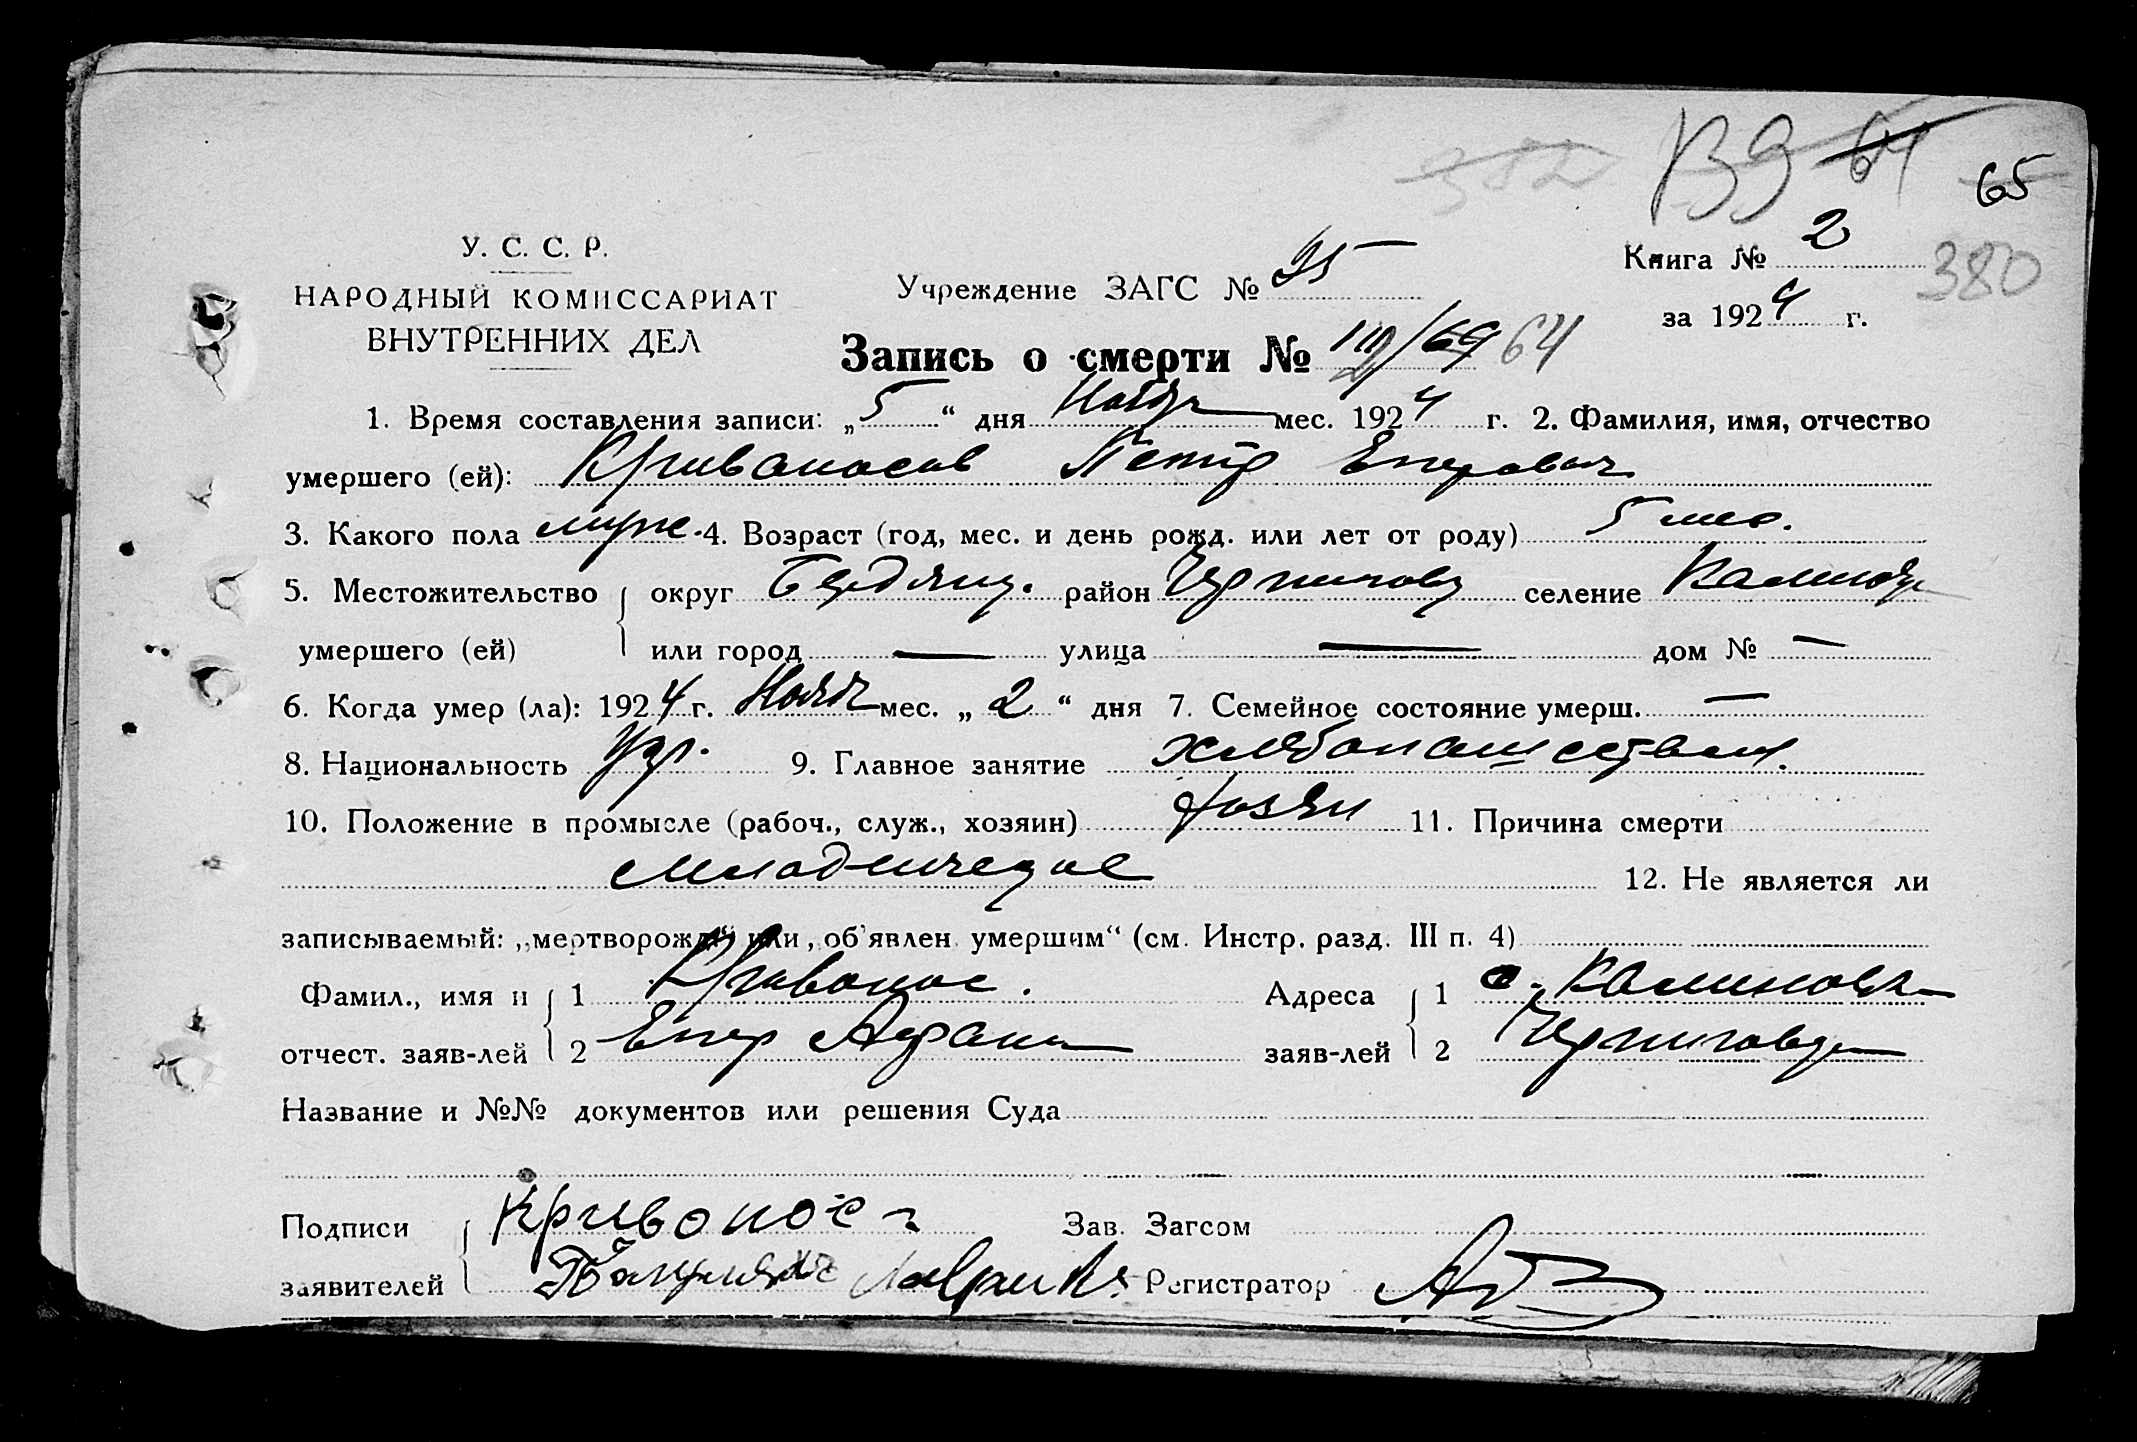 382 64 65
У. С. С. Р.
НАРОДНЫЙ КОМИССАРИАТ
ВНУТРЕННИХ ДЕЛ
Учреждение ЗАГС № 95
Книга № 2 380
за 1924 г.
Запись о смерти № 64
1. Время составления записи: „5“ дня Ноябр мес. 1924 г. 2. Фамилия, имя, отчество
умершего (ей): Кривоносов Петр Егорович
3. Какого пола муж. 4. Возраст (год, мес. и день рожд. или лет от роду) 5 мес.
5. Местожительство округ Бердянц. район Черниговц селение Калинов
умершего (ей) или город — улица — дом № —
6. Когда умер (ла): 1924 г. Нояб мес. „2“ дня 7. Семейное состояние умерш. —
8. Национальность укр. 9. Главное занятие хлебопашеством.
10. Положение в промысле (рабоч., служ., хозяин) хозяин 11. Причина смерти
младенческое 12. Не является ли
записываемый: „мертворожд“ или „об'явлен умершим“ (см. Инстр. разд. III п. 4)
Фамил., имя и 1 Кривонос. Адреса 1 с. Калиновка
отчест. заяв-лей 2 Егор заяв-лей 2 Черниговц
Название и №№ документов или решения Суда
Подписи Кривонос Зав. Загсом
заявителей Регистратор